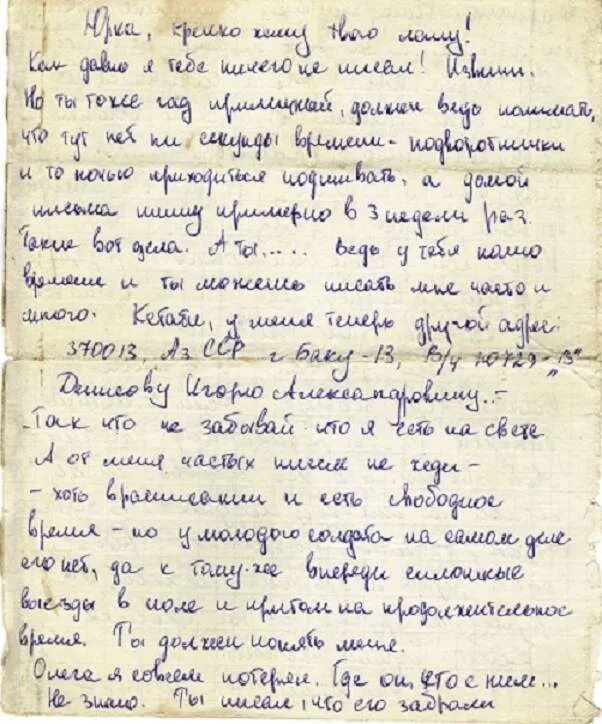 Юрка, крепко жму твою лапу!
Как давно я тебе ничего не писал! Извини.
Но ты тоже гад приличный, должен ведь понимать,
что тут нет ни секунды времени - подворотнички
и то ночью приходиться подшивать, а домой
письма пишу примерно в 3 недели раз.
Такие вот дела. А ты..... Ведь у тебя
времени и ты можешь писать мне часто и
много. Кстати, у меня теперь другой адрес:
370013, Аз ССР г. Баку-13, В/ч 10729 "В"
Денисову Игорю Александровичу.-
Так что не забывай что я есть на свете
А от меня частых писем не жди-
- хоть в расписании и есть свободное
время - но у молодого солдата на самом деле
его нет, да к тому-же впереди сплошные
выезды в поле и притом на продолжительное
время. Ты должен понять меня.
Олега я совсем потерял. Где он, что с ним...
Не знаю. Ты писал, что его забрали